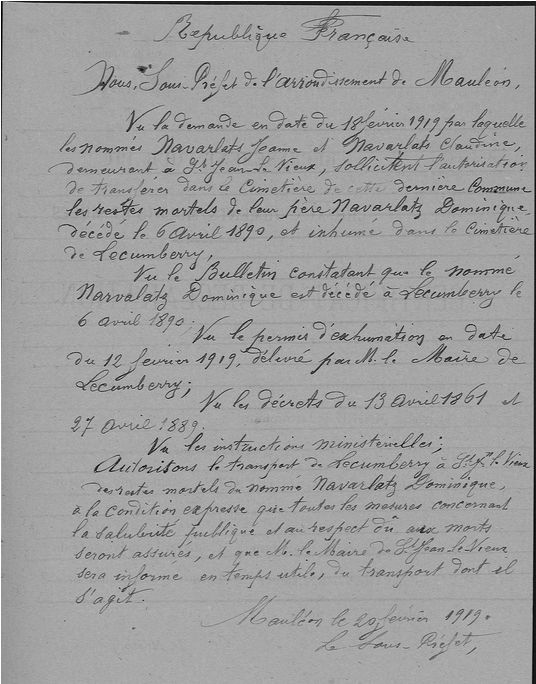 Republique Française
Nous, Sous-Préfet de l'arrondissement de Mauléon,
Vu la demande en date du 18 février 1919 par laquelle
les nommés Navarlats Jeanne et Navarlats Claudine,
demeurant à St Jean-le Vieux, sollicitent l'autorisation
de transférer dans le Cimetière de cette dernière Commune
les restes mortels de leur père Navarlatz Dominique,
décédé le 6 Avril 1890, et inhumé dans le Cimetière
de Lecumberry;
Vu le Bulletin constatant que le nommé
Narvalatz Dominique est décédé à Lecumberry le
6 avril 1890;
Vu le permis d'exhumation en date
du 12 février 1919, délivré par M. le Maire de
Lecumberry;
Vu les décrets du 13 Avril 1861 et
27 avril 1889.
Vu les instructions ministérielles;
Autorisons le transport de Lecumberry à St Jn le Vieux
des restes mortels du nommé Navarlatz Dominique,
à la condition expresse que toutes les mesures concernant
la salubrité publique et au respect dû aux morts
seront assurés, et que M. le Maire de St Jean-le-Vieux
sera informé en temps utile, du transport dont il
s'agit.
Mauléon le 20 février 1919.
Le Sous-Préfet,